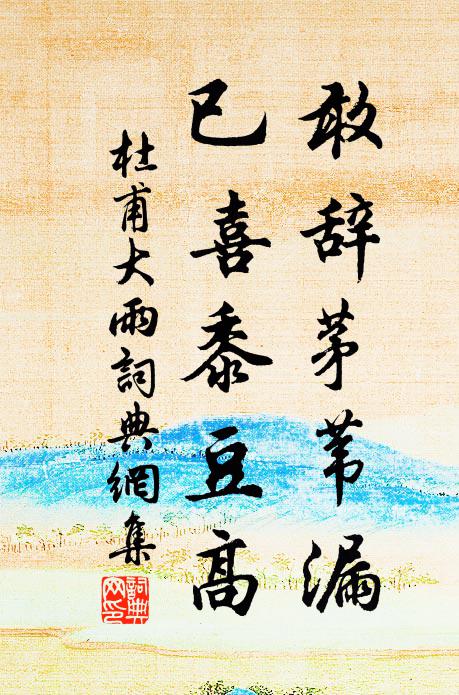 敢辞茅苇漏
已喜黍豆高
杜甫大雨詞典網集
詞典网印